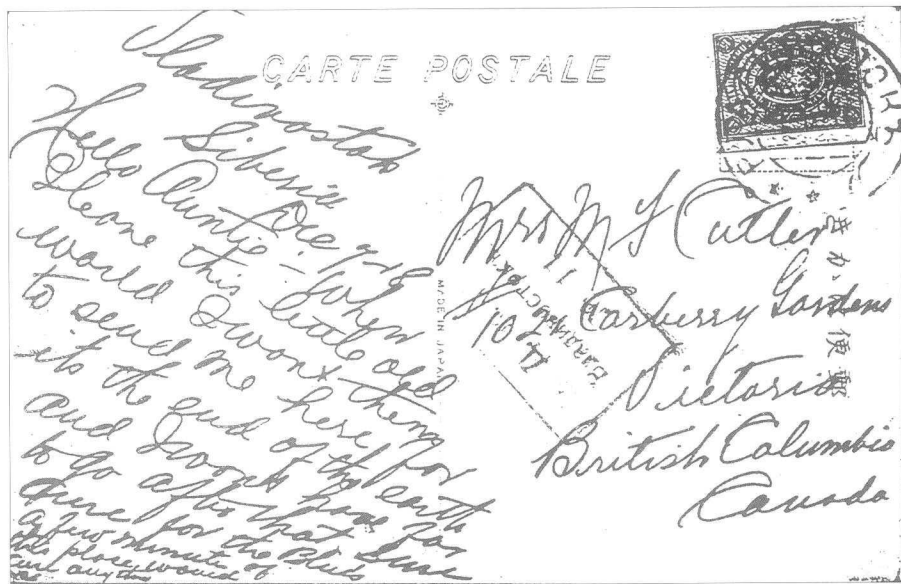 CARTE POSTALE
Vladivostok
Siberia
Dec 9-18
Hello Auntie - When
I leave this little old
world I want them
to send me here for
its the end of the earth
and I won't have far
to go after that. Sure
cure for the Blues
a few minutes of
this place would
cure anything
MADE IN JAPAN
Mrs M F Cutler
Carberry Gardens
Victoria
British Columbia
Canada
きか 便郵